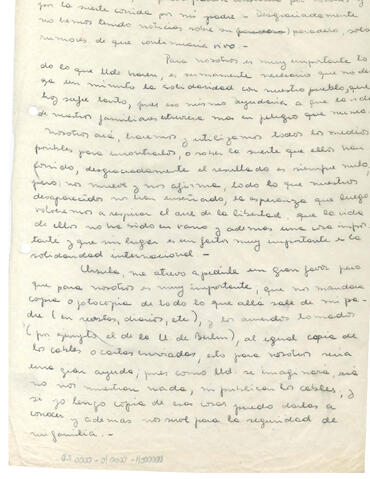 por la suerte corrida por mi padre - Desgraciadamente
no hemos tenido noticias sobre su paradero, solo
rumores de que continuaría vivo.-
Para nosotros es muy importante to
do lo que Uds hacen, es sumamente necesario que no de
ya un minuto la solidaridad con nuestro pueblo, que
hoy sufre tanto, pues eso mismo ayudaría a que la vida
de nuestros familiares estuviera mas en peligro que nunca.
Nosotros acá, hacemos y utilizamos todos los medios
posibles para encontrarlos, o saber la suerte que ellos han
corrido, desgraciadamente el resultado es siempre nulo,
pero, nos mueve y nos afirma, todo lo que nuestros
desaparecidos nos han enseñado, la esperanza que luego
volveremos a respirar el aire de la libertad, que la vida
de ellos no ha sido en vano y ademas una cosa impor
tante y que sin lugar es un factor muy importante es la
solidaridad internacional.-
Ursula, me atrevo a pedirle un gran favor pero
que para nosotros es muy importante, que nos mandara
copia o fotocopia de todo lo que allá sale de mi pa
dre (en revistas, diarios, etc), y los acuerdos tomados
(por ejemplo el de la U. de Berlin), al igual copia de
los cables o cartas enviadas, esto para nosotros sería
una gran ayuda, pues como Ud. se imaginara, acá
no nos muestran nada, ni publican los cables, y
si yo tengo copia de esas cosas puedo darlas a
conocer y ademas nos sirve para la seguridad de
mi familia.-